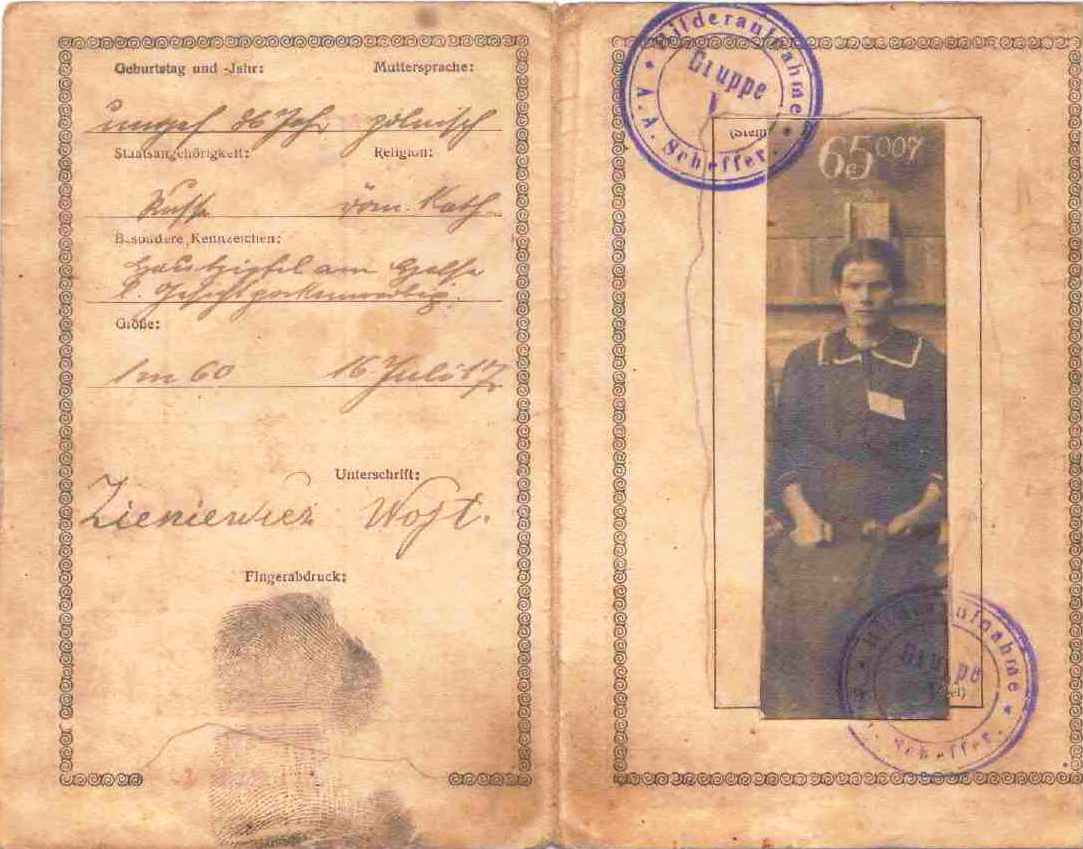 Geburtstag und -Jahr: Muttersprache:
ungef 36 Jahr polnisch
Staatsangehörigkeit: Religion:
Russe röm. Kath.
Besondere Kennzeichen:
am Halse
l. Gesicht pockennarbig.
Größe:
1m 60 16 Juli 17
Unterschrift:
Zieniewicz Wojt.
Fingerabdruck:
Bilderaufnahme
Gruppe
I
A. A. Scheffer.
(Stem
65007
Bilderaufnahme
Gruppe
Scheffer.